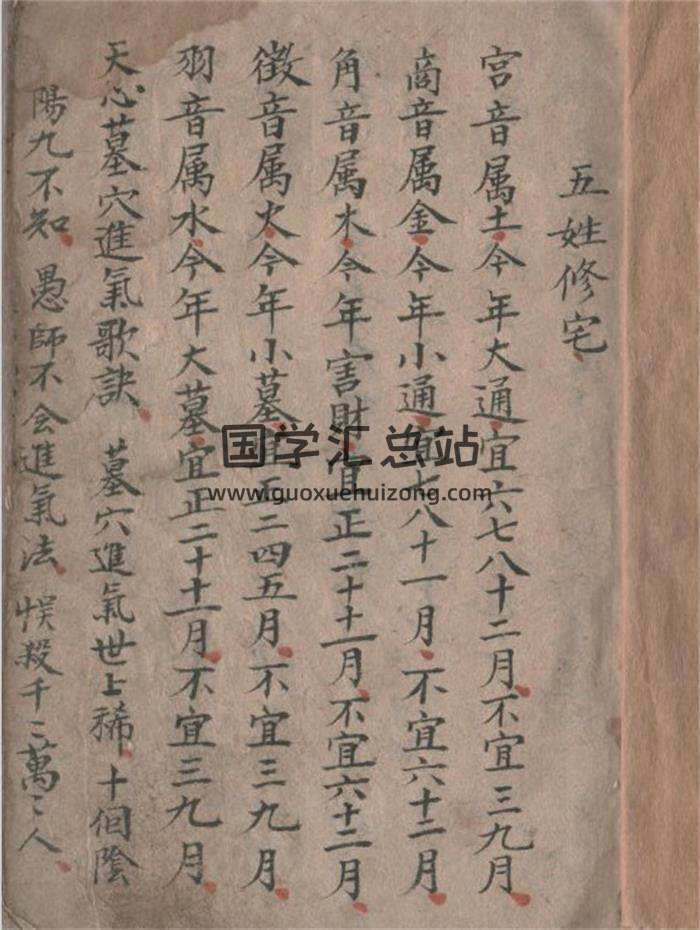 五姓修宅
宮音属土今年大通宜六七八十二月不宜三九月
商音属金今年小通宜七八十一月不宜六十二月
角音属木今年害財宜正二十十一月不宜六十二月
徵音属火今年小墓宜正二四五月不宜三九月
羽音属水今年大墓宜正二十十一月不宜三九月
天心墓穴進氣歌訣 墓穴進氣世上稀十個陰
陽九不知愚師不会進氣法悮殺千〻萬〻人
国学汇总站
www.guoxuehuizong.com